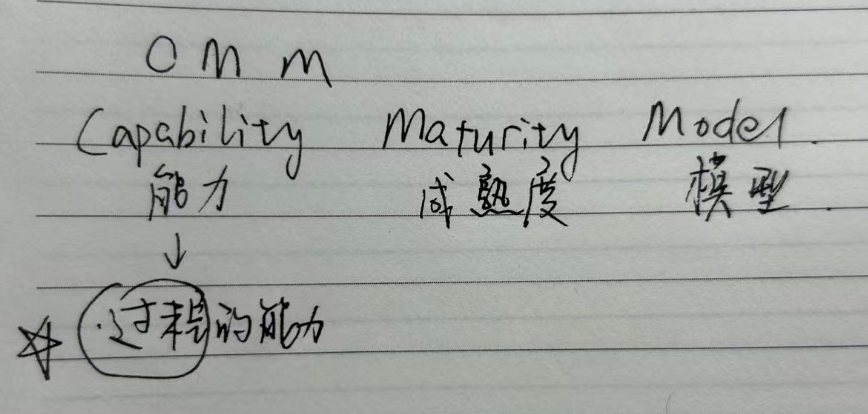 CMM
Capability Maturity Model.
能力 成熟度 模型.
↓
☆ 过程的能力